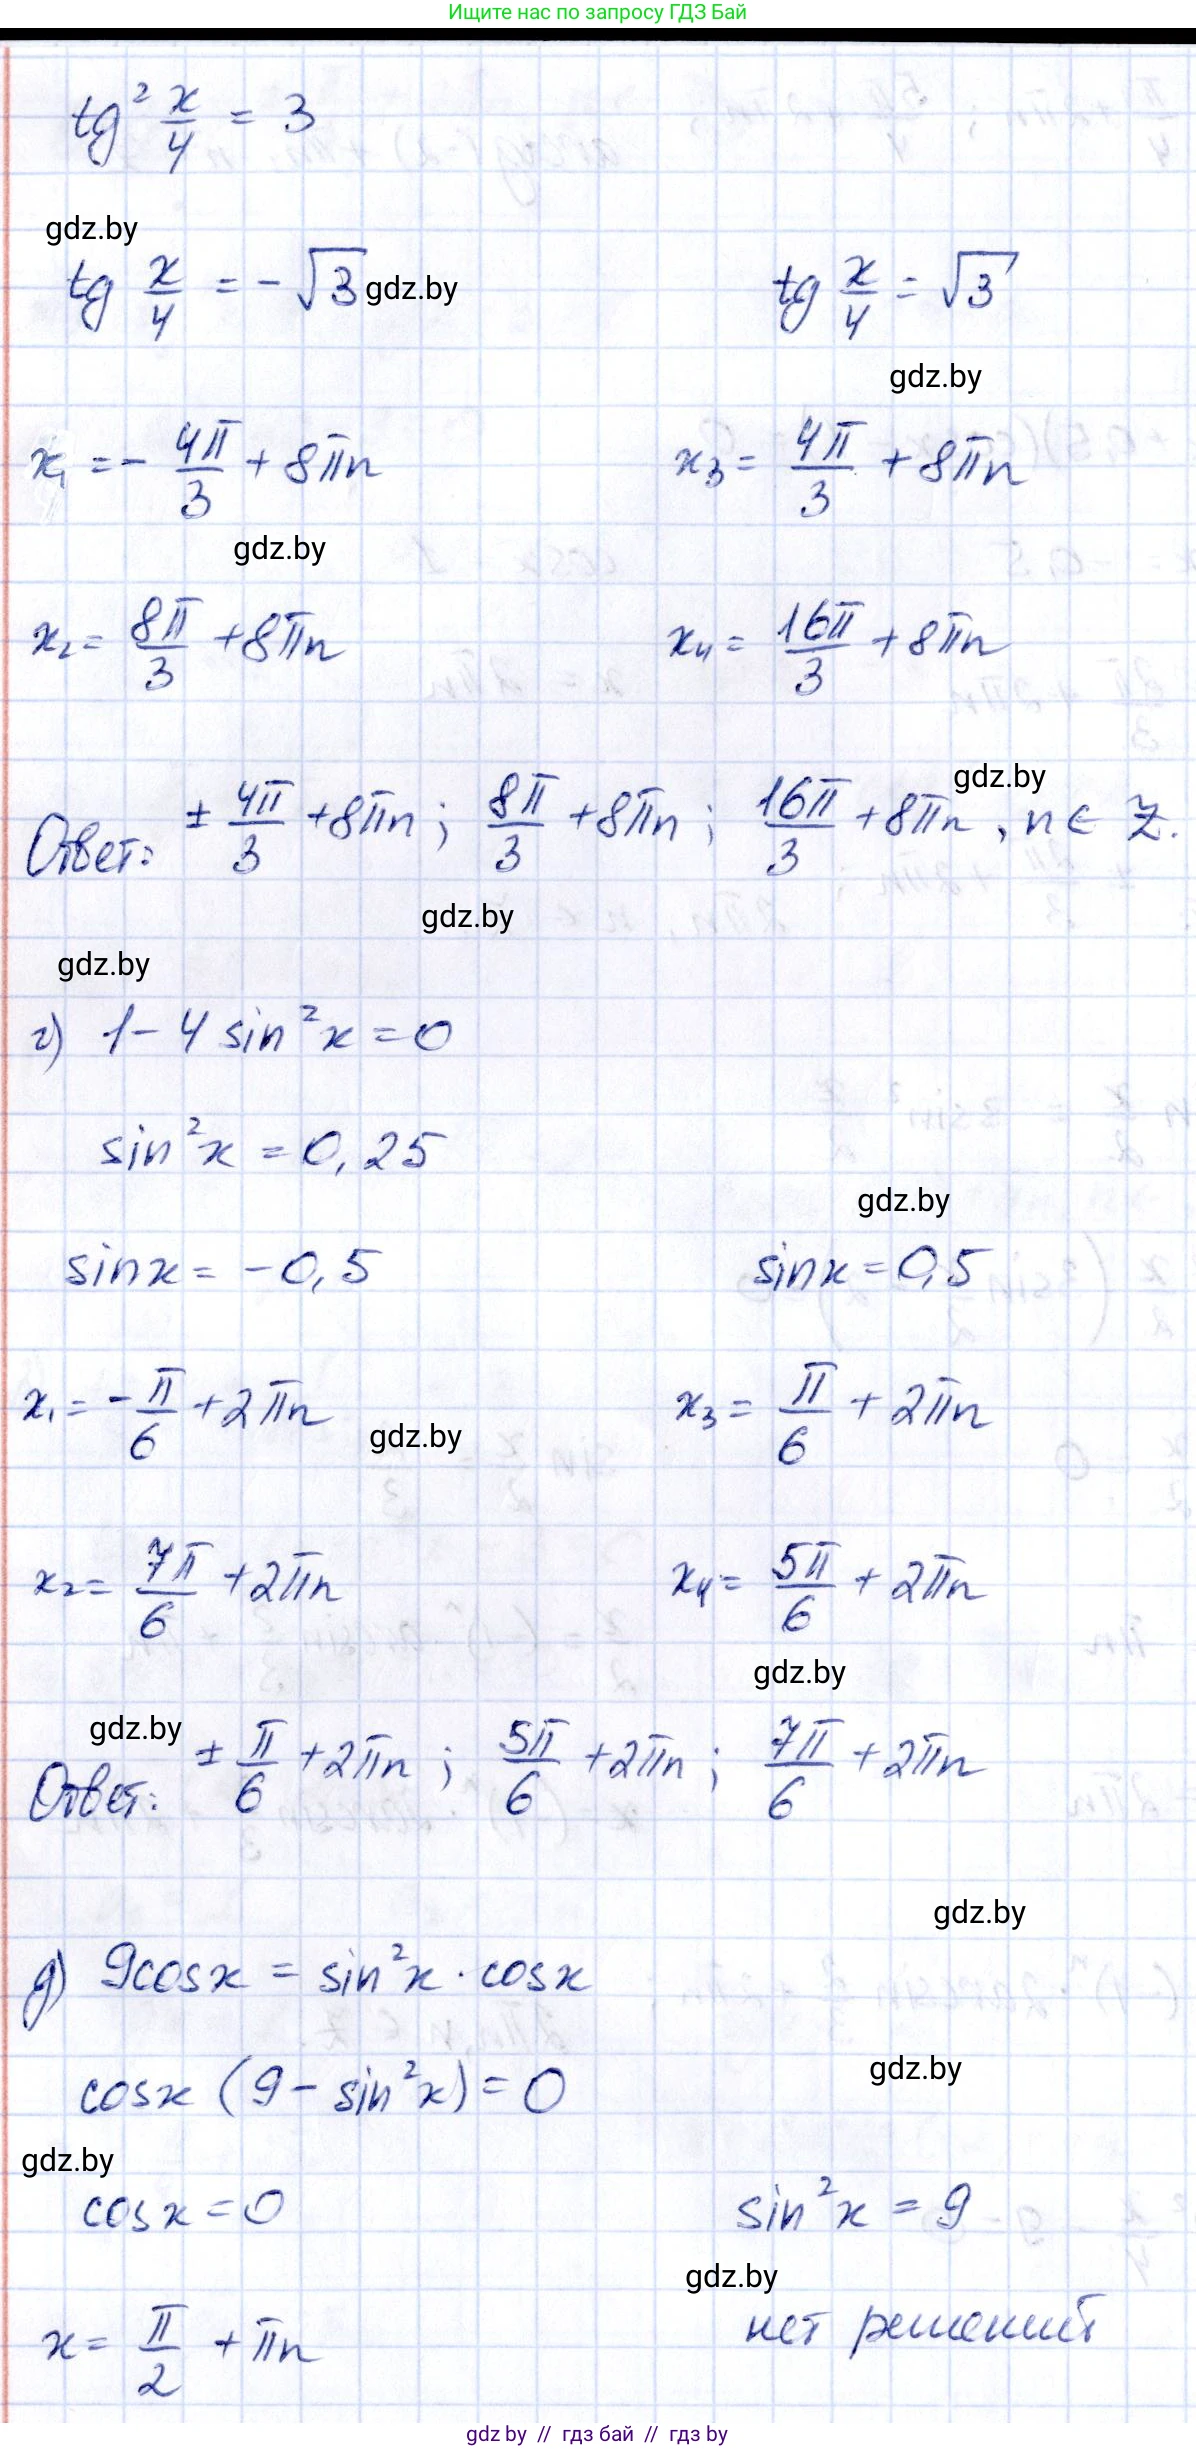 Ищите нас по запросу ГДЗ Бай
tg² x/4 = 3
gdz.by
tg x/4 = -√3 gdz.by tg x/4 = √3
gdz.by
x₁ = - 4π/3 + 8πn x₃ = 4π/3 + 8πn
gdz.by
x₂ = 8π/3 + 8πn x₄ = 16π/3 + 8πn
gdz.by
Ответ: ± 4π/3 + 8πn ; 8π/3 + 8πn ; 16π/3 + 8πn , n ∈ Z.
gdz.by
gdz.by
г) 1 - 4 sin²x = 0
sin²x = 0,25
gdz.by
sinx = -0,5 sinx = 0,5
x₁ = - π/6 + 2πn x₃ = π/6 + 2πn
gdz.by
x₂ = 7π/6 + 2πn x₄ = 5π/6 + 2πn
gdz.by
gdz.by
Ответ: ± π/6 + 2πn ; 5π/6 + 2πn ; 7π/6 + 2πn
gdz.by
д) 9cosx = sin²x · cosx
gdz.by
cosx (9 - sin²x) = 0
gdz.by
cosx = 0 sin²x = 9
gdz.by
x = π/2 + πn нет решений
gdz by // гдз бай // гдз by